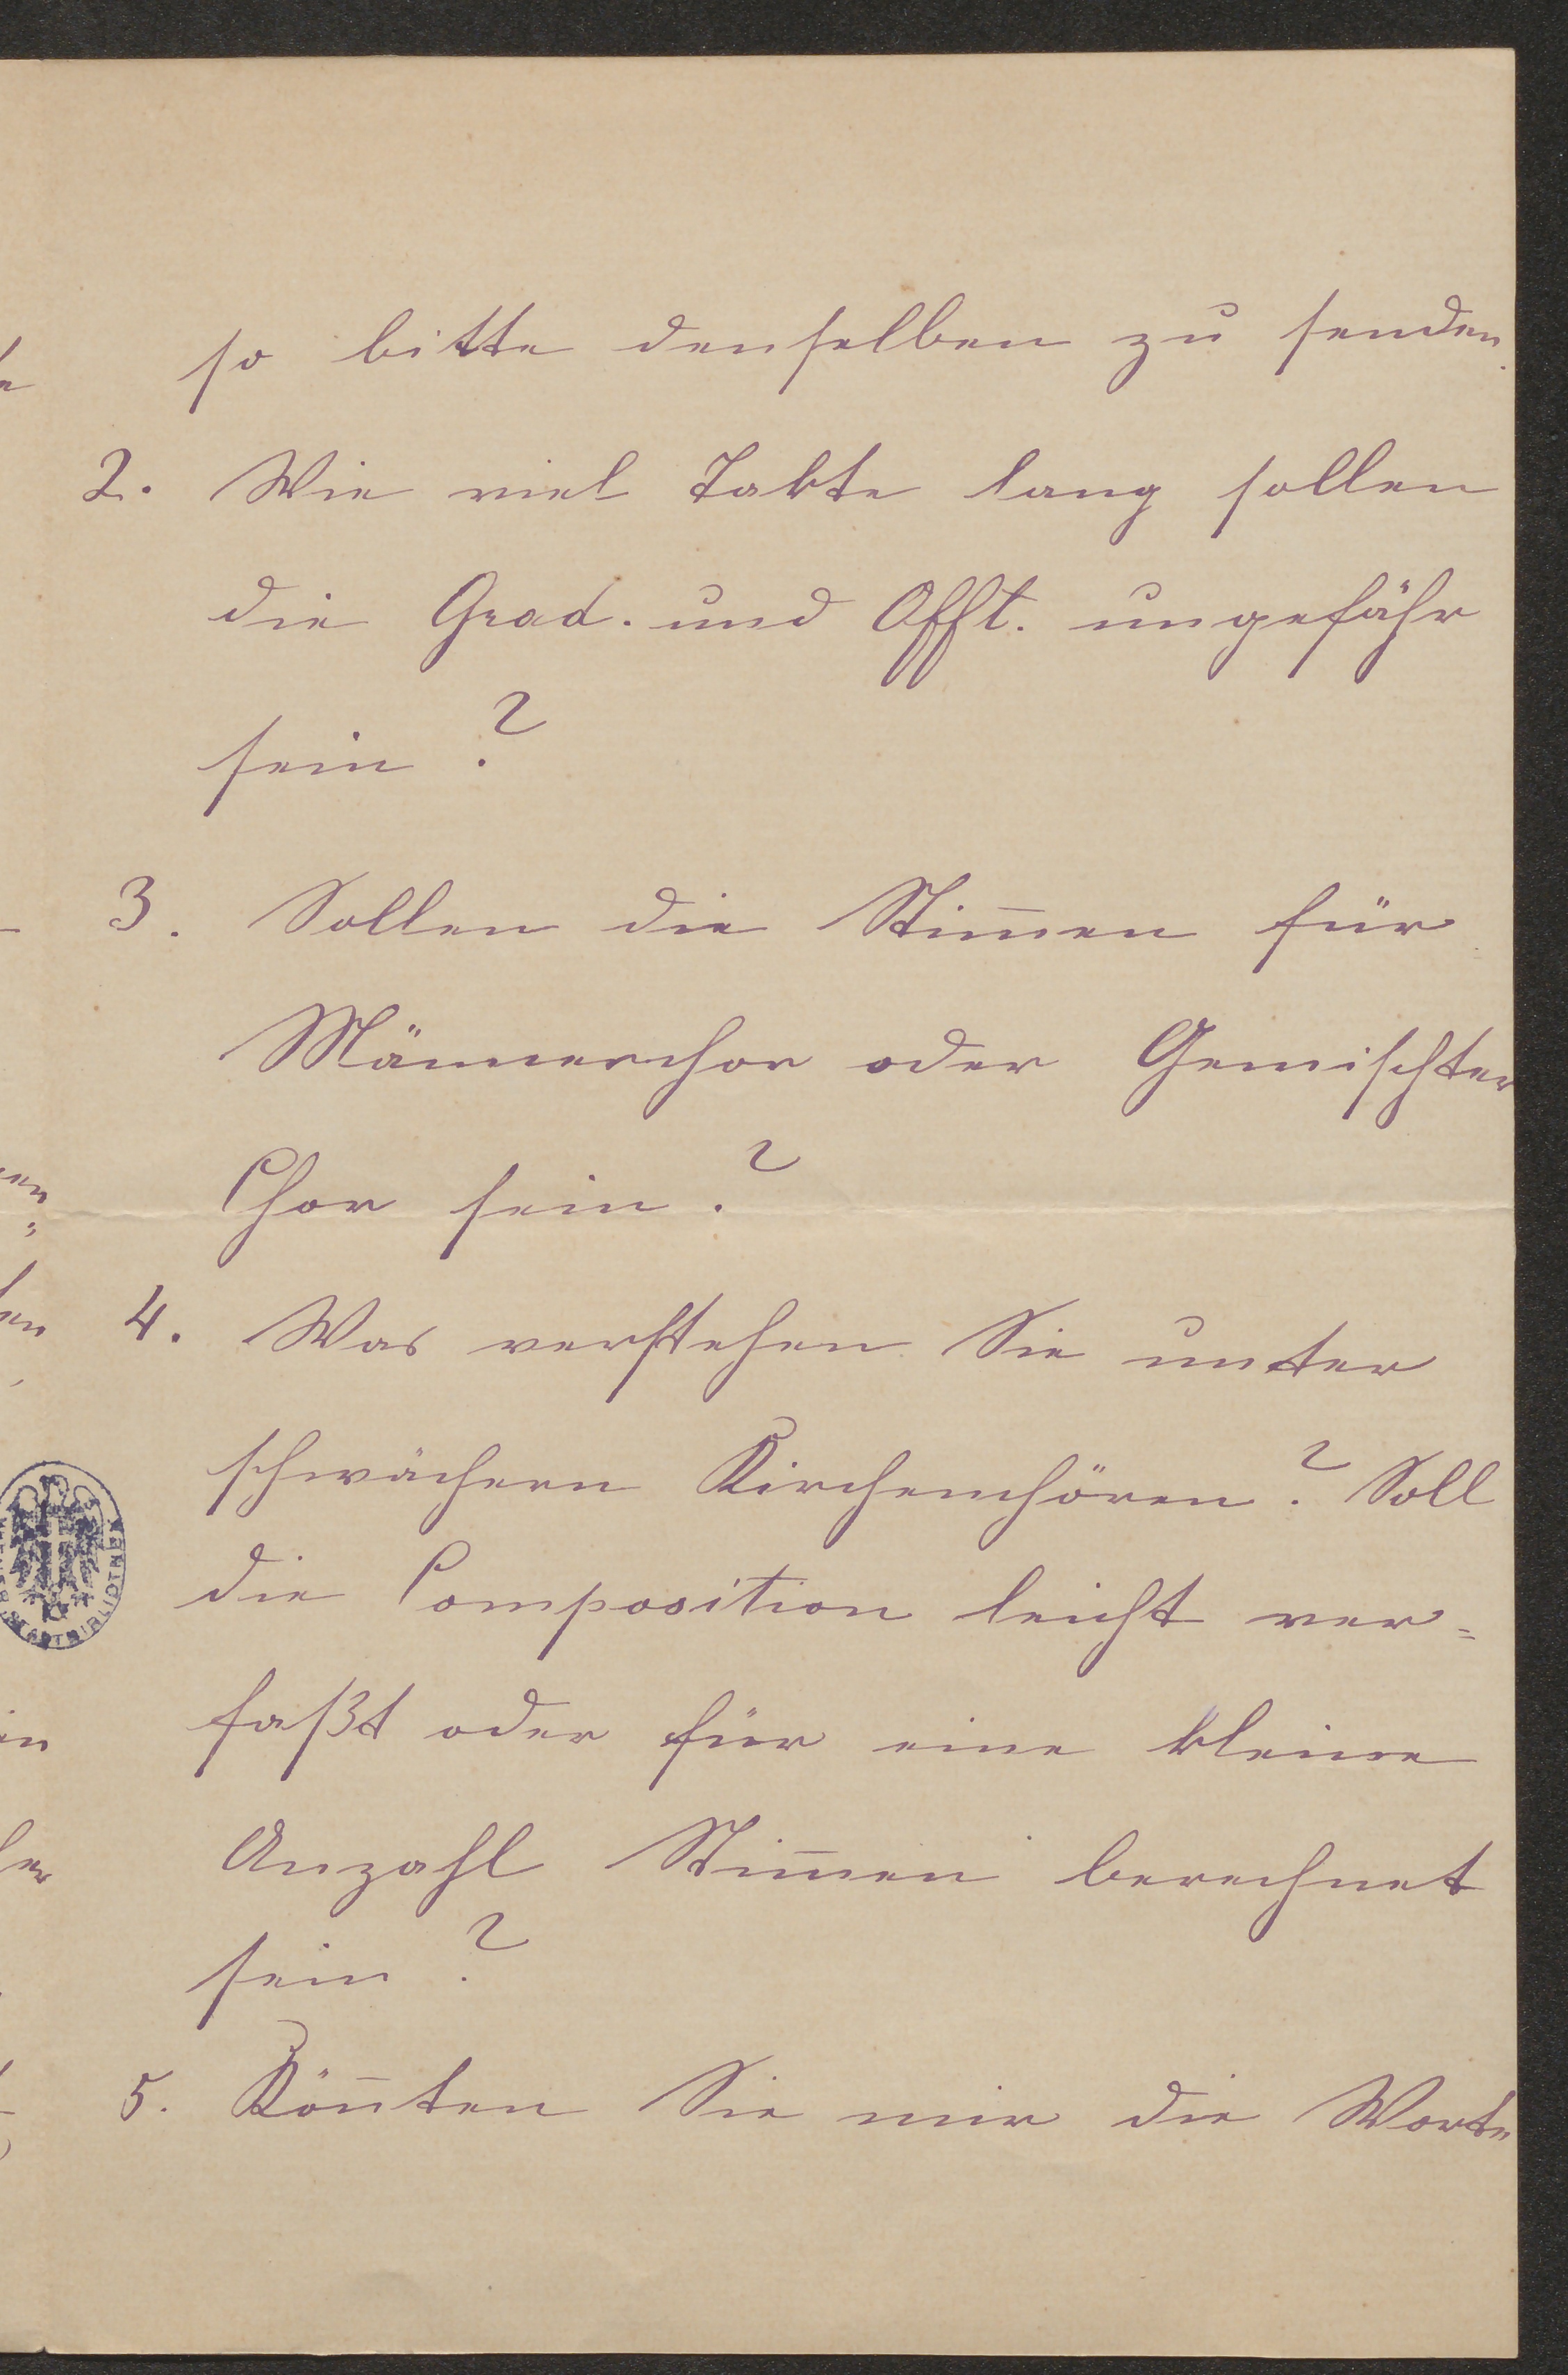 so bitte denselben zu senden.
2. Wie viel Takte lang sollen
die Grad. und Offt. ungefähr
sein?
3. Sollen die Stim̄en für
Männerchor oder Gemischter
Chor sein?
4. Was verstehen Sie unter
schwächern Kirchenchören? Soll
die Composition leicht ver=
faßt oder für eine kleine
Anzahl Stim̄en berechnet
sein?
5. Kön̄ten Sie mir die Worte